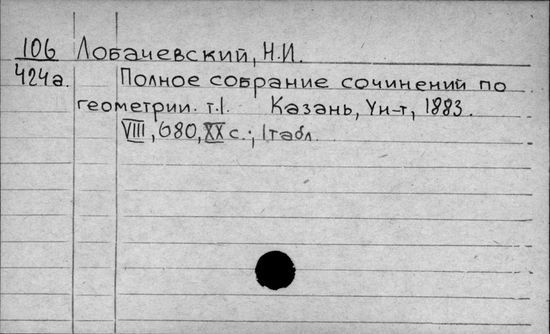 106 Лобачевский, Н.И.
424а. Полное собрание сочинений по
геометрии. т.1. Казань, Ун-т, 1883.
VIII, 680, XX с.; 1 табл.